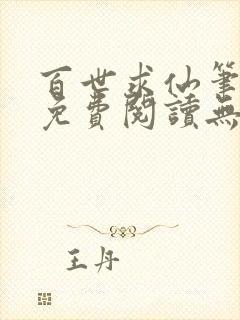 百世求仙筆
免費閱讀無
王丹